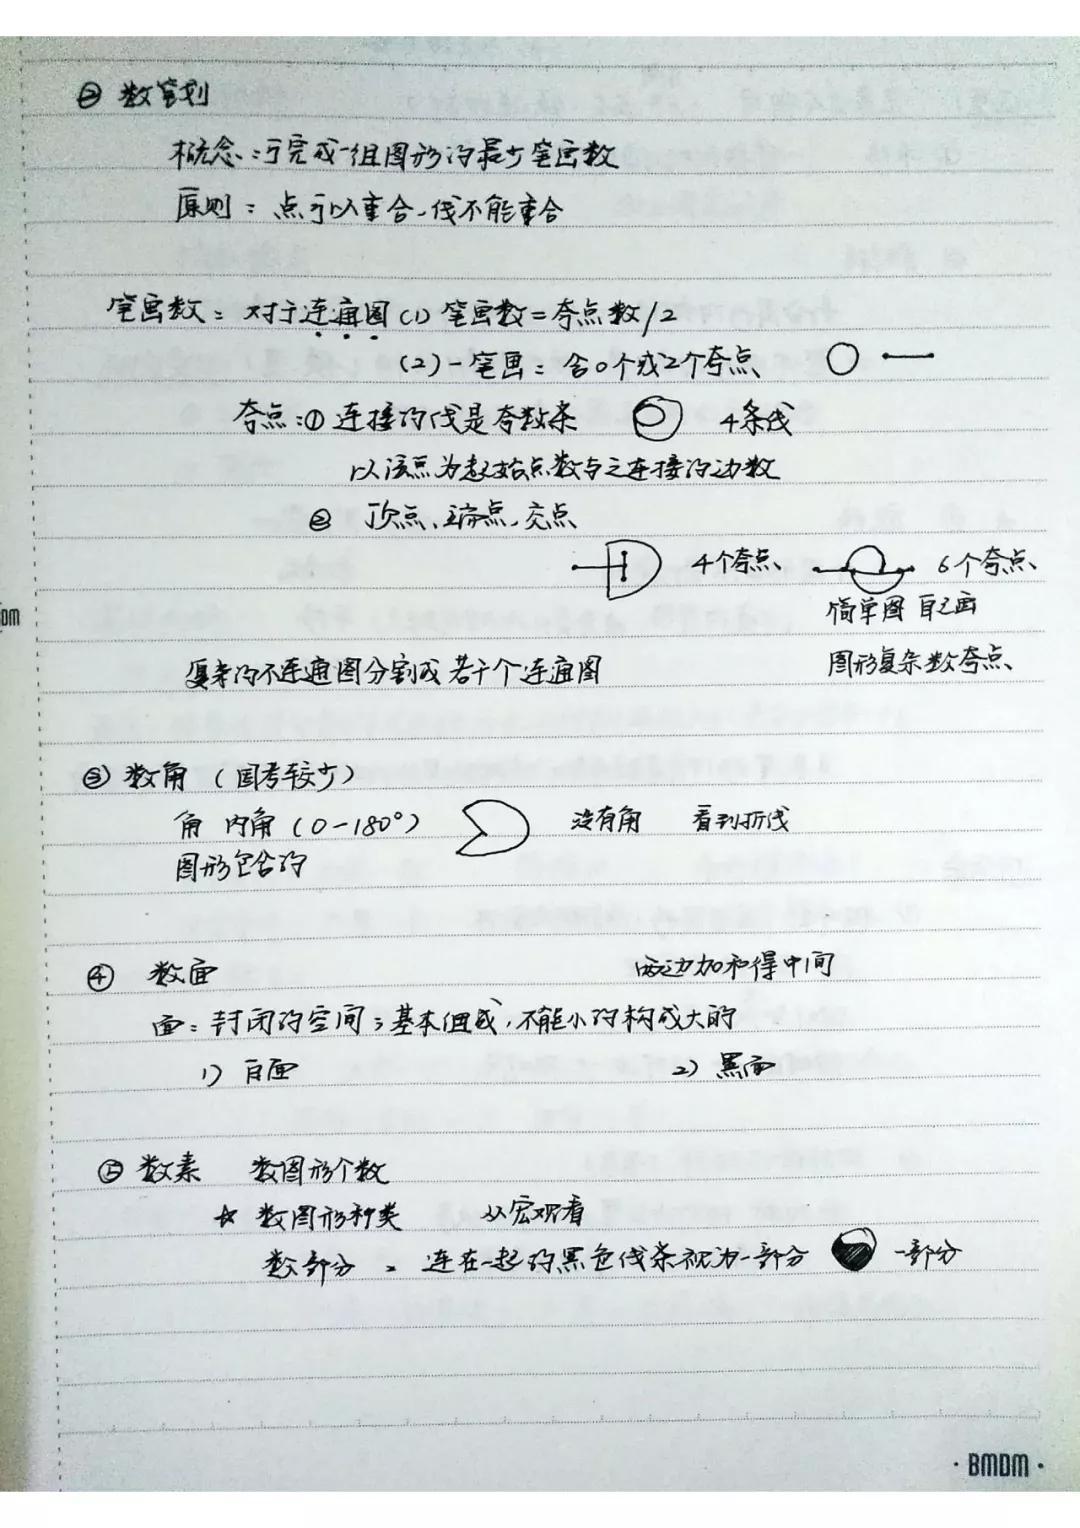 ② 数笔划
概念：可完成一组图形的最少笔画数
原则：点可以重合，线不能重合
笔画数：对于连通图（1）笔画数＝奇点数/2
（2）一笔画：含0个或2个奇点
奇点：① 连接的线是奇数条 4条线
以该点为起始点数与之连接的边数
② 顶点、端点、交点
4个奇点 6个奇点
简单图 自己画
复杂的不连通图分割成若干个连通图 图形复杂数奇点
③ 数角（国考较少）
角 内角（0－180°） 没有角 看到折线
图形包含的
④ 数面 两边加和得中间
面：封闭的空间；基本组成，不能小的构成大的
1）白面 2）黑面
⑤ 数素 数图形个数
☆ 数图形种类 从宏观看
数部分： 连在一起的黑色线条视为一部分 一部分
· BMDM ·